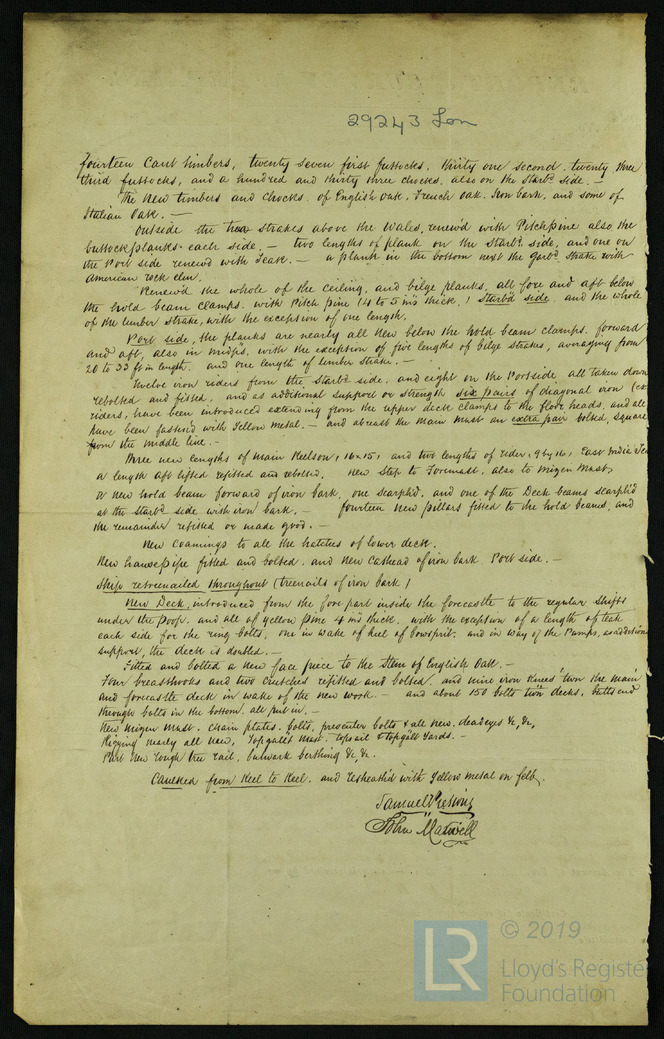 29243 Lon
fourteen Cant timbers, twenty seven first futtocks, thirty one second, twenty three
third futtocks, and a hundred and thirty three chocks, also on the Starbd side. —
The New timbers and Chocks of English Oak, French Oak, Iron bark, and some of
Italian Oak. —
Outside the two strakes above the Wales, renew'd with Pitchpine also the
buttockplanks each side, — two lengths of plank on the Starbd side, and one on
the Port side renew'd with Teak. — a plank in the bottom next the Garbd Strake with
American rock elm.
Renew'd the whole of the Ceiling, and bilge planks, all fore and aft below
the hold beam clamps, with Pitch pine (4 to 5 ins thick,) Starbd side and the whole
of the limber strake, with the exception of one length.
Port side, the planks are nearly all New below the hold beam clamps, forward
and aft, also in midps, with the exception of five lengths of bilge strakes, averaging from
20 to 33 ft in length. and one length of limber strake. —
Twelve iron riders from the Starbd side, and eight on the Portside all taken down
rebolted and fitted, and as additional support or strength six pairs of diagonal iron
riders, have been introduced extending from the upper deck clamps to the floor heads, and all
have been fasten'd with Yellow metal. — and abreast the Main Mast an extra pair bolted, square
from the middle line. —
Three new lengths of Main Keelson, 16 x 15, and two lengths of rider, East India
a length aft lifted refitted and rebolted. New Step to Foremast, also to Mizen Mast,
a new hold beam forward of iron bark, one scarph'd, and one of the Deck beams scarph'd
at the Starbd side with iron bark. — fourteen New pillars fitted to the hold beams, and
the remainder refitted or made good. —
New Coamings to all the hatches of lower deck.
New hawsepipe fitted and bolted, and New Cathead of iron bark Port side. —
Ship retreenailed throughout (treenails of iron bark)
New Deck, introduced from the fore part inside the forecastle to the regular shifts
under the poop, and all of yellow pine 4 ins thick, with the exception of a length of teak
each side for the ring bolts, one in wake of heel of bowsprit, and in way of the Pumps, as additional
support, the deck is doubled. —
Fitted and bolted a new face piece to the Stem of English Oak. —
Four breasthooks and two crutches refitted and bolted, and nine iron knees twn the main
and forecastle deck in wake of the new work. — and about 150 bolts twn decks, butts end
through bolts in the bottom, all put in. —
New Mizen Mast, chain plates, bolts, preventer bolts & all new, deadeyes &c, &c,
Rigging nearly all new, Topgallt Mast, topsail & topgallt Yards. —
Part New rough tree rail, bulwark berthing &c, &c.
Caulked from Keel to Keel, and resheath'd with Yellow metal on felt.
John Maxwell
© 2019
LR
Lloyd's Register
Foundation